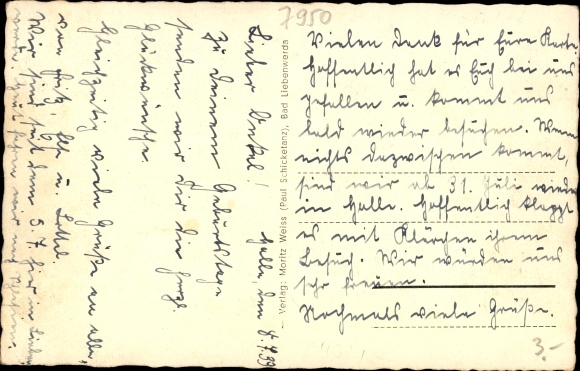 7950
Halle, den 8.7.39
Lieber Onkel!
Zu Deinem Geburtstage
senden wir Dir die herzl.
Glückwünsche.
Gleichzeitig viele Grüße an alle,
von Fritz, u.
Wir sind seit dem 5.7. hier in
Verlag: Moritz Weiss (Paul Schicketanz), Bad Liebenwerda
Vielen Dank für Eure Karte.
Hoffentlich hat es Euch bei uns
gefallen u. kommt uns
bald wieder besuchen. Wenn
nichts dazwischen kommt,
sind wir ab 31. Juli wieder
in Halle. Hoffentlich klappt
es mit Klärchen ihrem
Besuch. Wir würden uns
sehr freuen.
Nochmals viele Grüße.
3.-